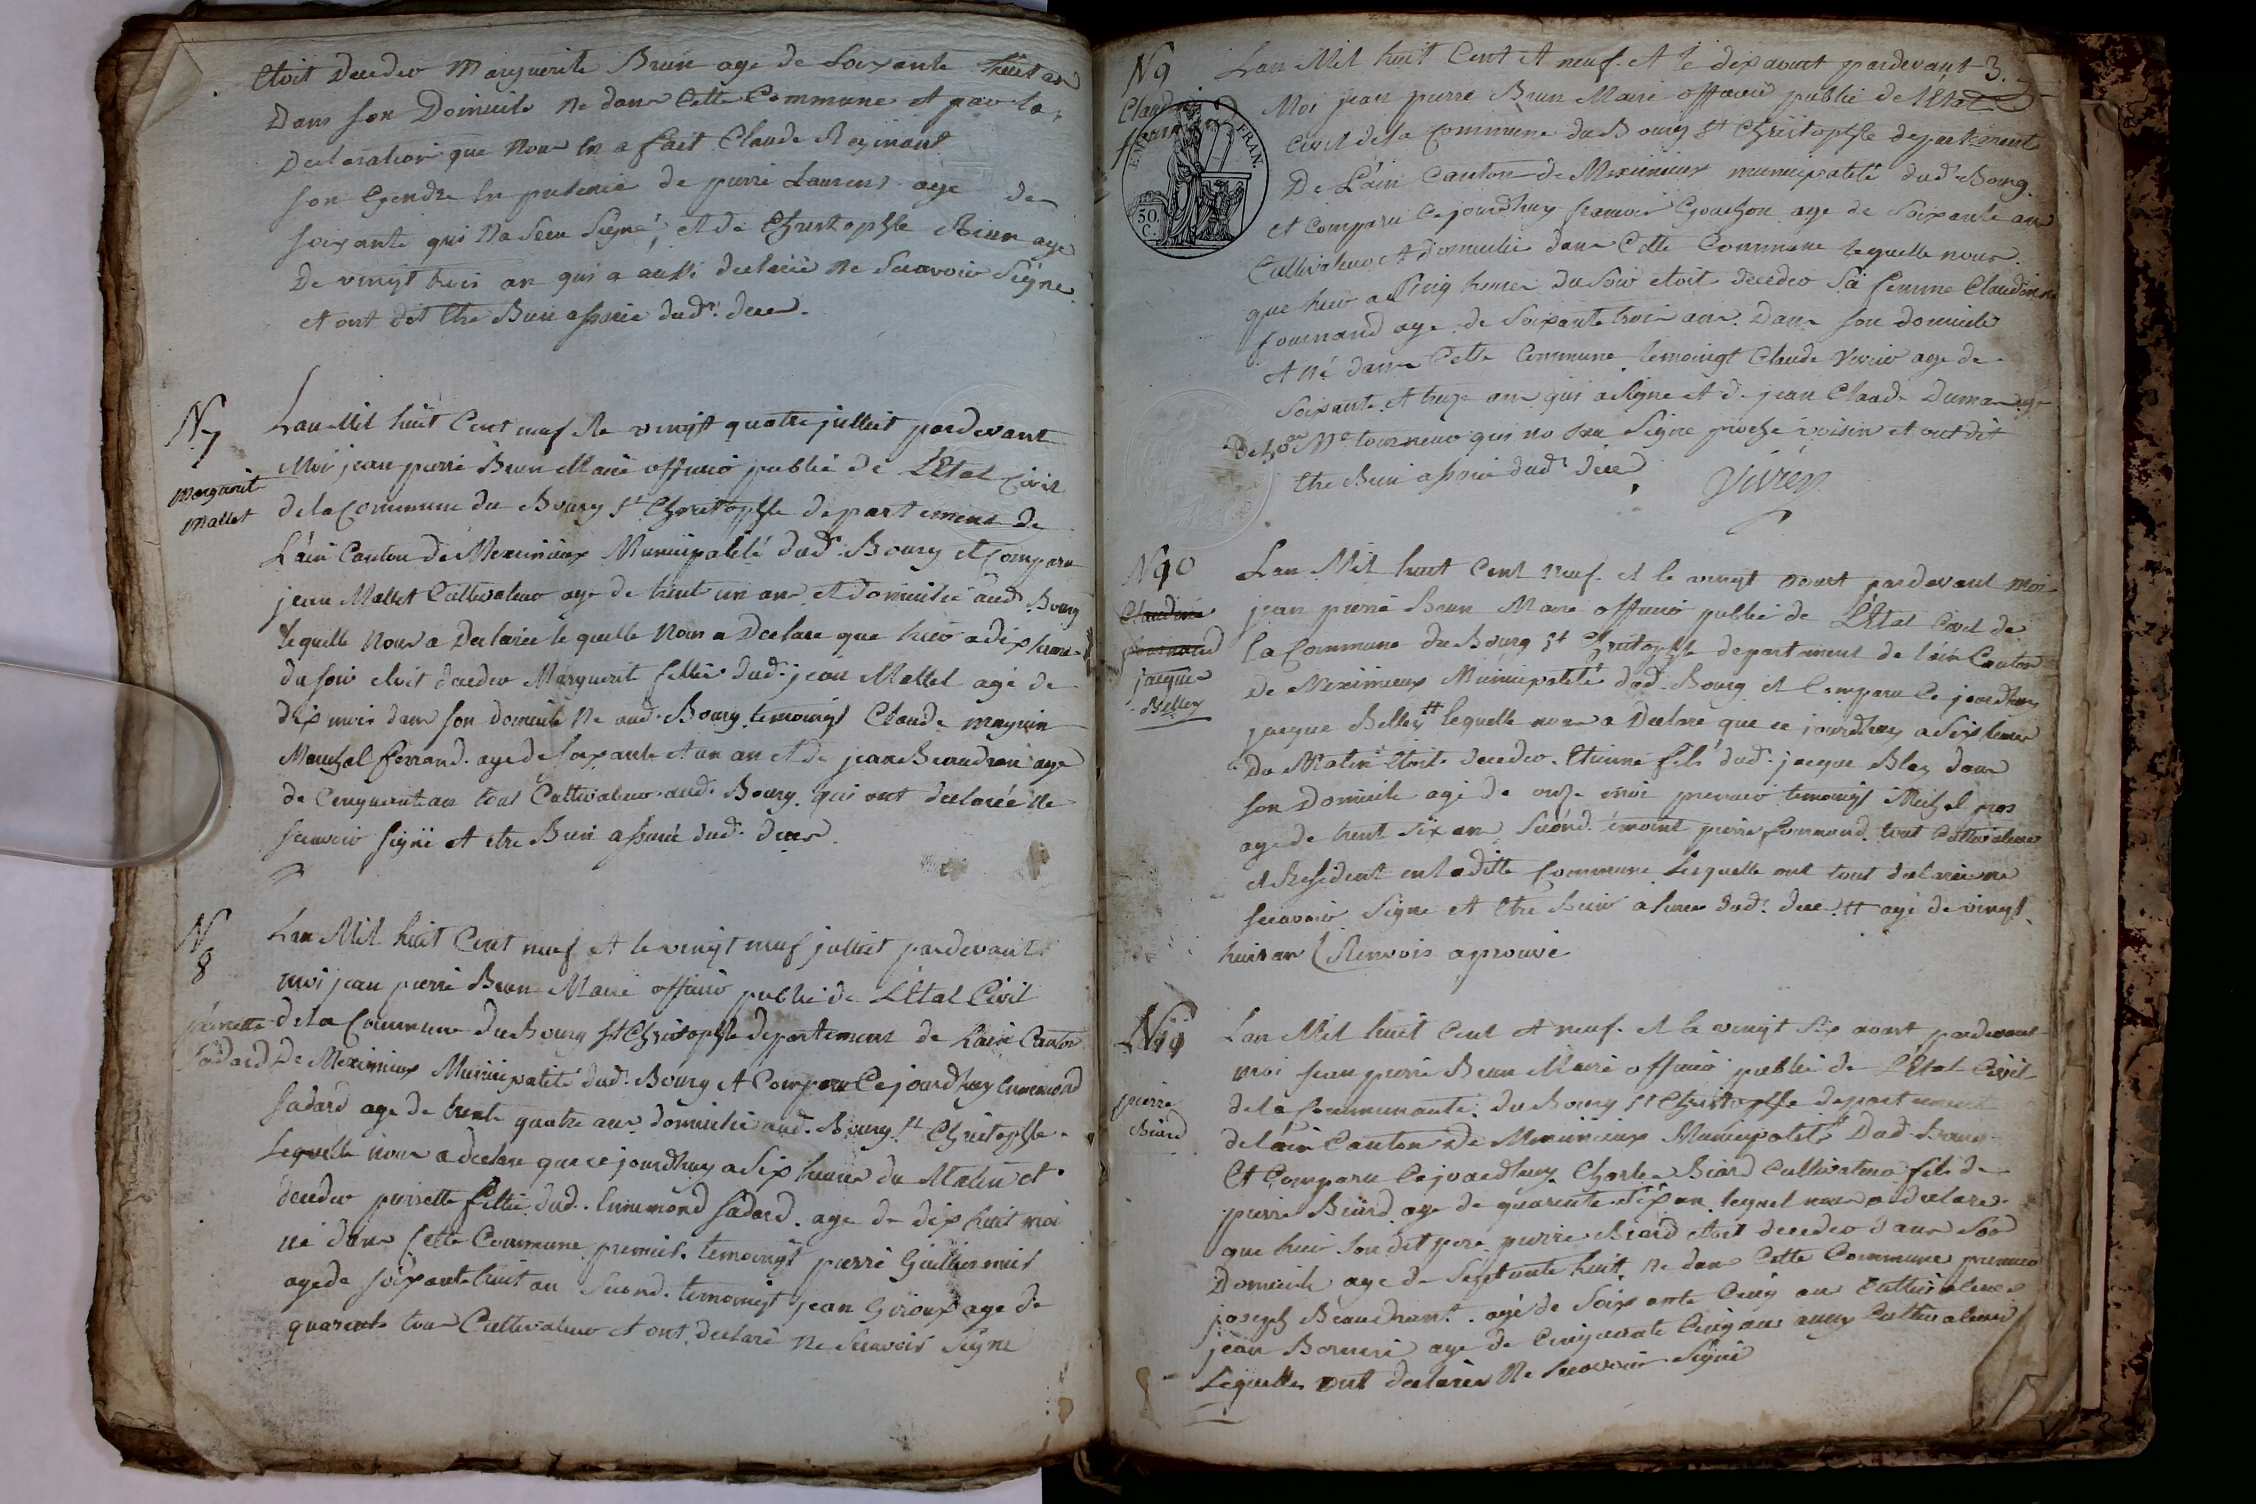 Etoit decedeo Marguerite Brun age de soixante huit an
Dans son Domicile ne dans Cette Commune et par la
Declaration que nour en a fait Claude Reymant
son Gendre en presence de pierre Laurens age de
soixante qui na seeu signé, et de Christophle Brun age
De vingt trois an qui a aussi declaré ne scavoir signe
et ont dit Etre Bien assuré dudt deces.
N 7
Marguerit
Mallet
Lan Mil huit Cent neuf Le vingt quatre julliet pardevant
Moi jean pierre Brun Maire officié public de L'Etat Civil
de la Commune du Bourg St Christophle departement de
L'ain Canton de Meximieux Municipalité dudt Bourg et Comparu
jean Mallet Cultivateur age de trent un ans et Domicilié audt Bourg
lequelle nous a Declarée lequelle Nous a Declare que hier a dix heure
du soir etoit decedeo Marguerit fellie dudt jean Mallet age de
dix mois dans son domicile ne audt Bourg temoingt Claude
Ferrand age de soixante et un an et de jean Beaudran age
de Cinquant an tout Cultivateur audt Bourg qui ont declarée ne
scavoir signe et etre Bien assuré dudt deces
N
8
pierrette
Sadard
Lan Mil huit Cent neuf et le vingt neuf julliet pardevant
moi jean pierre Brun Maire officié public de L'Etat Civil
de la Commune du Bourg St Christophle departement de Lain Canton
De Meximieux Municipalité dudt Bourg et Comparu Cejourdhuy Ennemond
Sadard age de trente quatre ans domicilie audt Bourg St Christophle.
Lequelle nous a declare que ce jourdhuy a six heures du Matin et
decedeo pierrette fellie dudt Ennemond Sadard age de dix huit moi
né dans Cette Commune premier temoingt pierre Guillermet
age de soixante huit an second temoingt jean Giroux age de
quarente tous Cultivateur et ont declaré ne scavoir signe
N 9
Lan Mil huit Cent et neuf et le dix aoust pardevant 3.
Moi jean pierre Brun Maire officié public de L'Etat
Civil de la Commune du Bourg St Christophle departement
De L'ain Canton de Meximieux municipalité dudt Bourg
et Comparu Cejourdhuy francoi Gonchon age de soixante an
Cultivateur et domicilié dans Cette Commune lequelle nous
que hier a Cinq heures du soir etoit decedeo sa femme Claudinne
fournand age de soixante trois ans Dans son domicile
et né dans Cette Commune temoingt Claude Vivier age de
soixante et treze ans qui a signe et de jean Claude Duma age
De 50 an Me tourneur qui no seu signe proche voisin et ont dit
Etre Bien assuré dudt deces
Vivier
EMP. FRAN.
50. C.
N 10
Claudine
fournand
jacque
Belley
Lan Mil huit Cent neuf et le vingt aoust pardevant moi
jean pierre Brun Maire officié public de L'Etat Civil de
la Commune du Bourg St Christophle departement de lain Canton
De Meximieux Municipalité dudt Bourg et Comparu Ce jourdhuy
jacque Belley # lequelle nous a Declare que ce jourdhuy a six heures
Du Matin Etoit decedeo Etienne fils dudt jacque Bley dans
son Domicile age de onze moi premier temoingt Michel gros
age de trent six an second temoint pierre fournand tout Cultivateur
et Resident en laditte Commune Lesquelle ont tout declarée ne
scavoir signe et Etre Bien assuré dudt dece # age de vingt
huit an Renvois aprouvé
N 11
pierre
Biard
Lan Mil huit Cent et neuf et le vingt six aoust pardevant
moi jean pierre Brun Maire officié public de L'Etat Civil
de la Communauté du Bourg St Christophle departement
de lain Canton De Meximieux Municipalité Dudt Bourg
Et Comparu Cejourdhuy Charles Biard Cultivateur fils de
pierre Biard age de quarente six an lequel nous a declare
que hier son dit pere pierre Biard etoit decedeo dans son
Domicile age de septente huit ne dans Cette Commune premier
joseph Beaudrant agé de soixante Cinq an Cultivateur
jean Borneri age de Cinquante Cinq ans aussy Cultivateur
Lequelles ont declarée ne scavoir signé